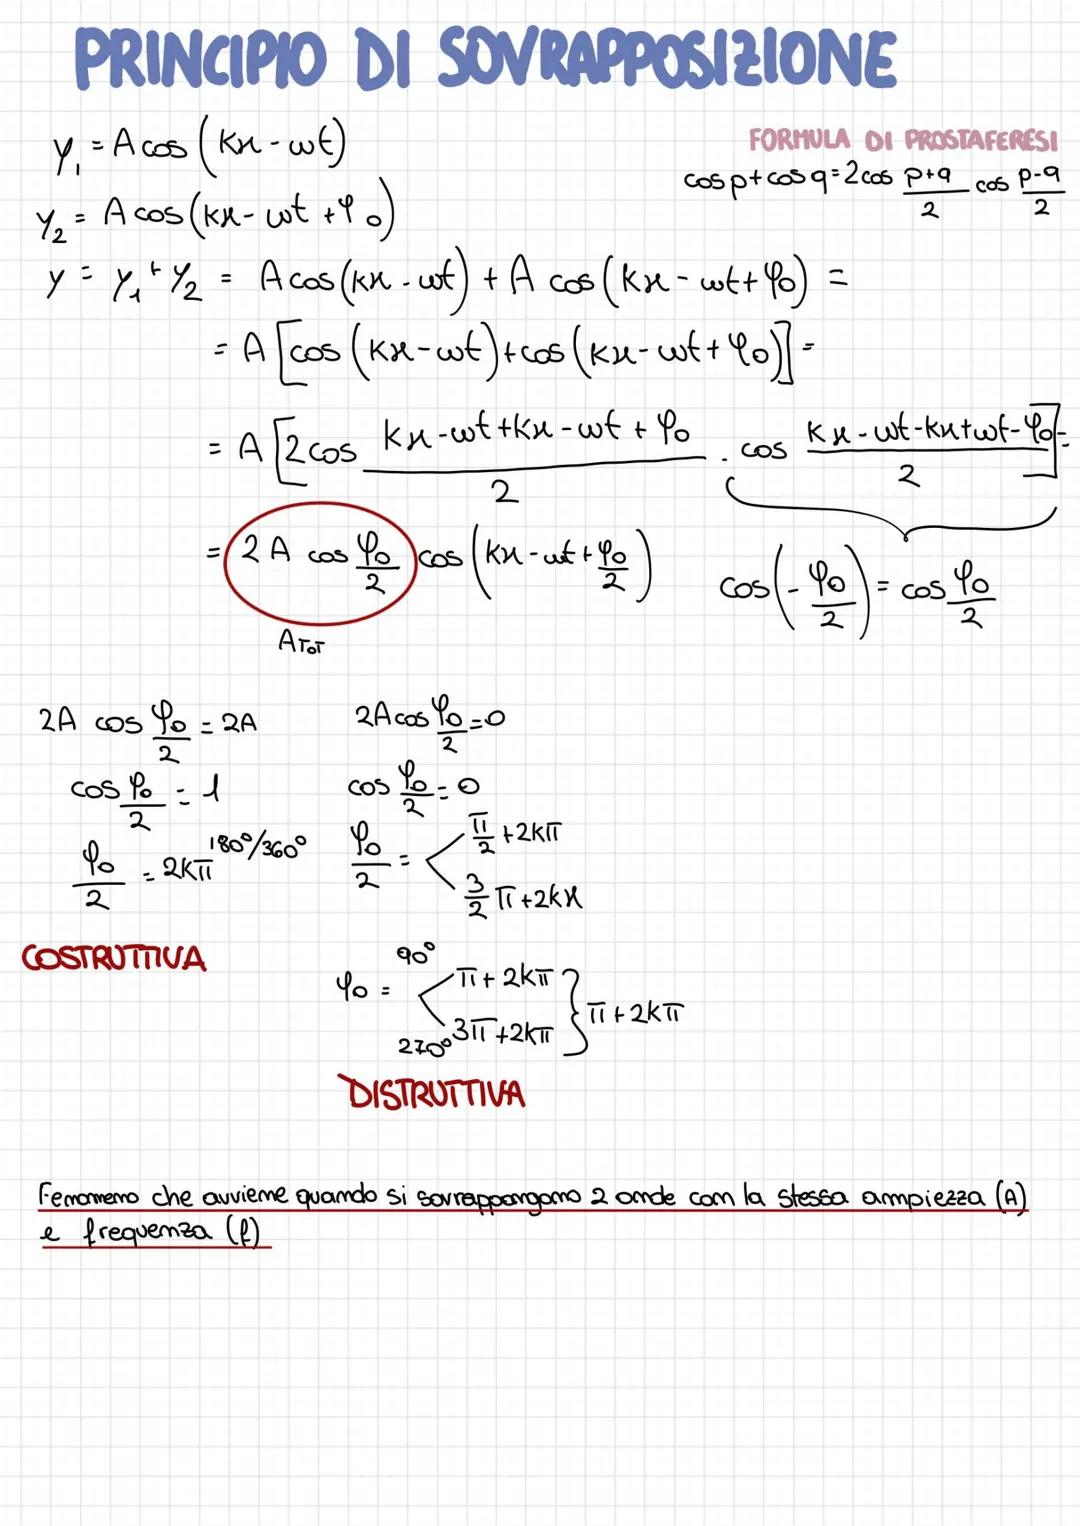 PRINCIPIO DI SOVRAPPOSIZIONE
y₁ = A cos (kx - ωt)
FORMULA DI PROSTAFERESI
cos p + cos q = 2 cos (p+q)/2 cos (p-q)/2
y₂ = A cos (kx - ωt + φ₀)
y = y₁ + y₂ = A cos (kx - ωt) + A cos (kx - ωt + φ₀) =
= A [cos (kx - ωt) + cos (kx - ωt + φ₀)] =
= A [2 cos (kx - ωt + kx - ωt + φ₀)/2 · cos (kx - ωt - kx + ωt - φ₀)/2] =
= 2A cos φ₀/2 cos (kx - ωt + φ₀/2)
cos (- φ₀/2) = cos φ₀/2
ATOT
2A cos φ₀/2 = 2A
cos φ₀/2 = 1
φ₀/2 = 2kπ 180°/360°
COSTRUTTIVA
2A cos φ₀/2 = 0
cos φ₀/2 = 0
φ₀/2 = < π/2 + 2kπ
3/2 π + 2kx
90°
φ₀ = < π + 2kπ } π + 2kπ
270° 3π + 2kπ
DISTRUTTIVA
Fenomeno che avviene quando si sovrappongono 2 onde con la stessa ampiezza (A)
e frequenza (f)